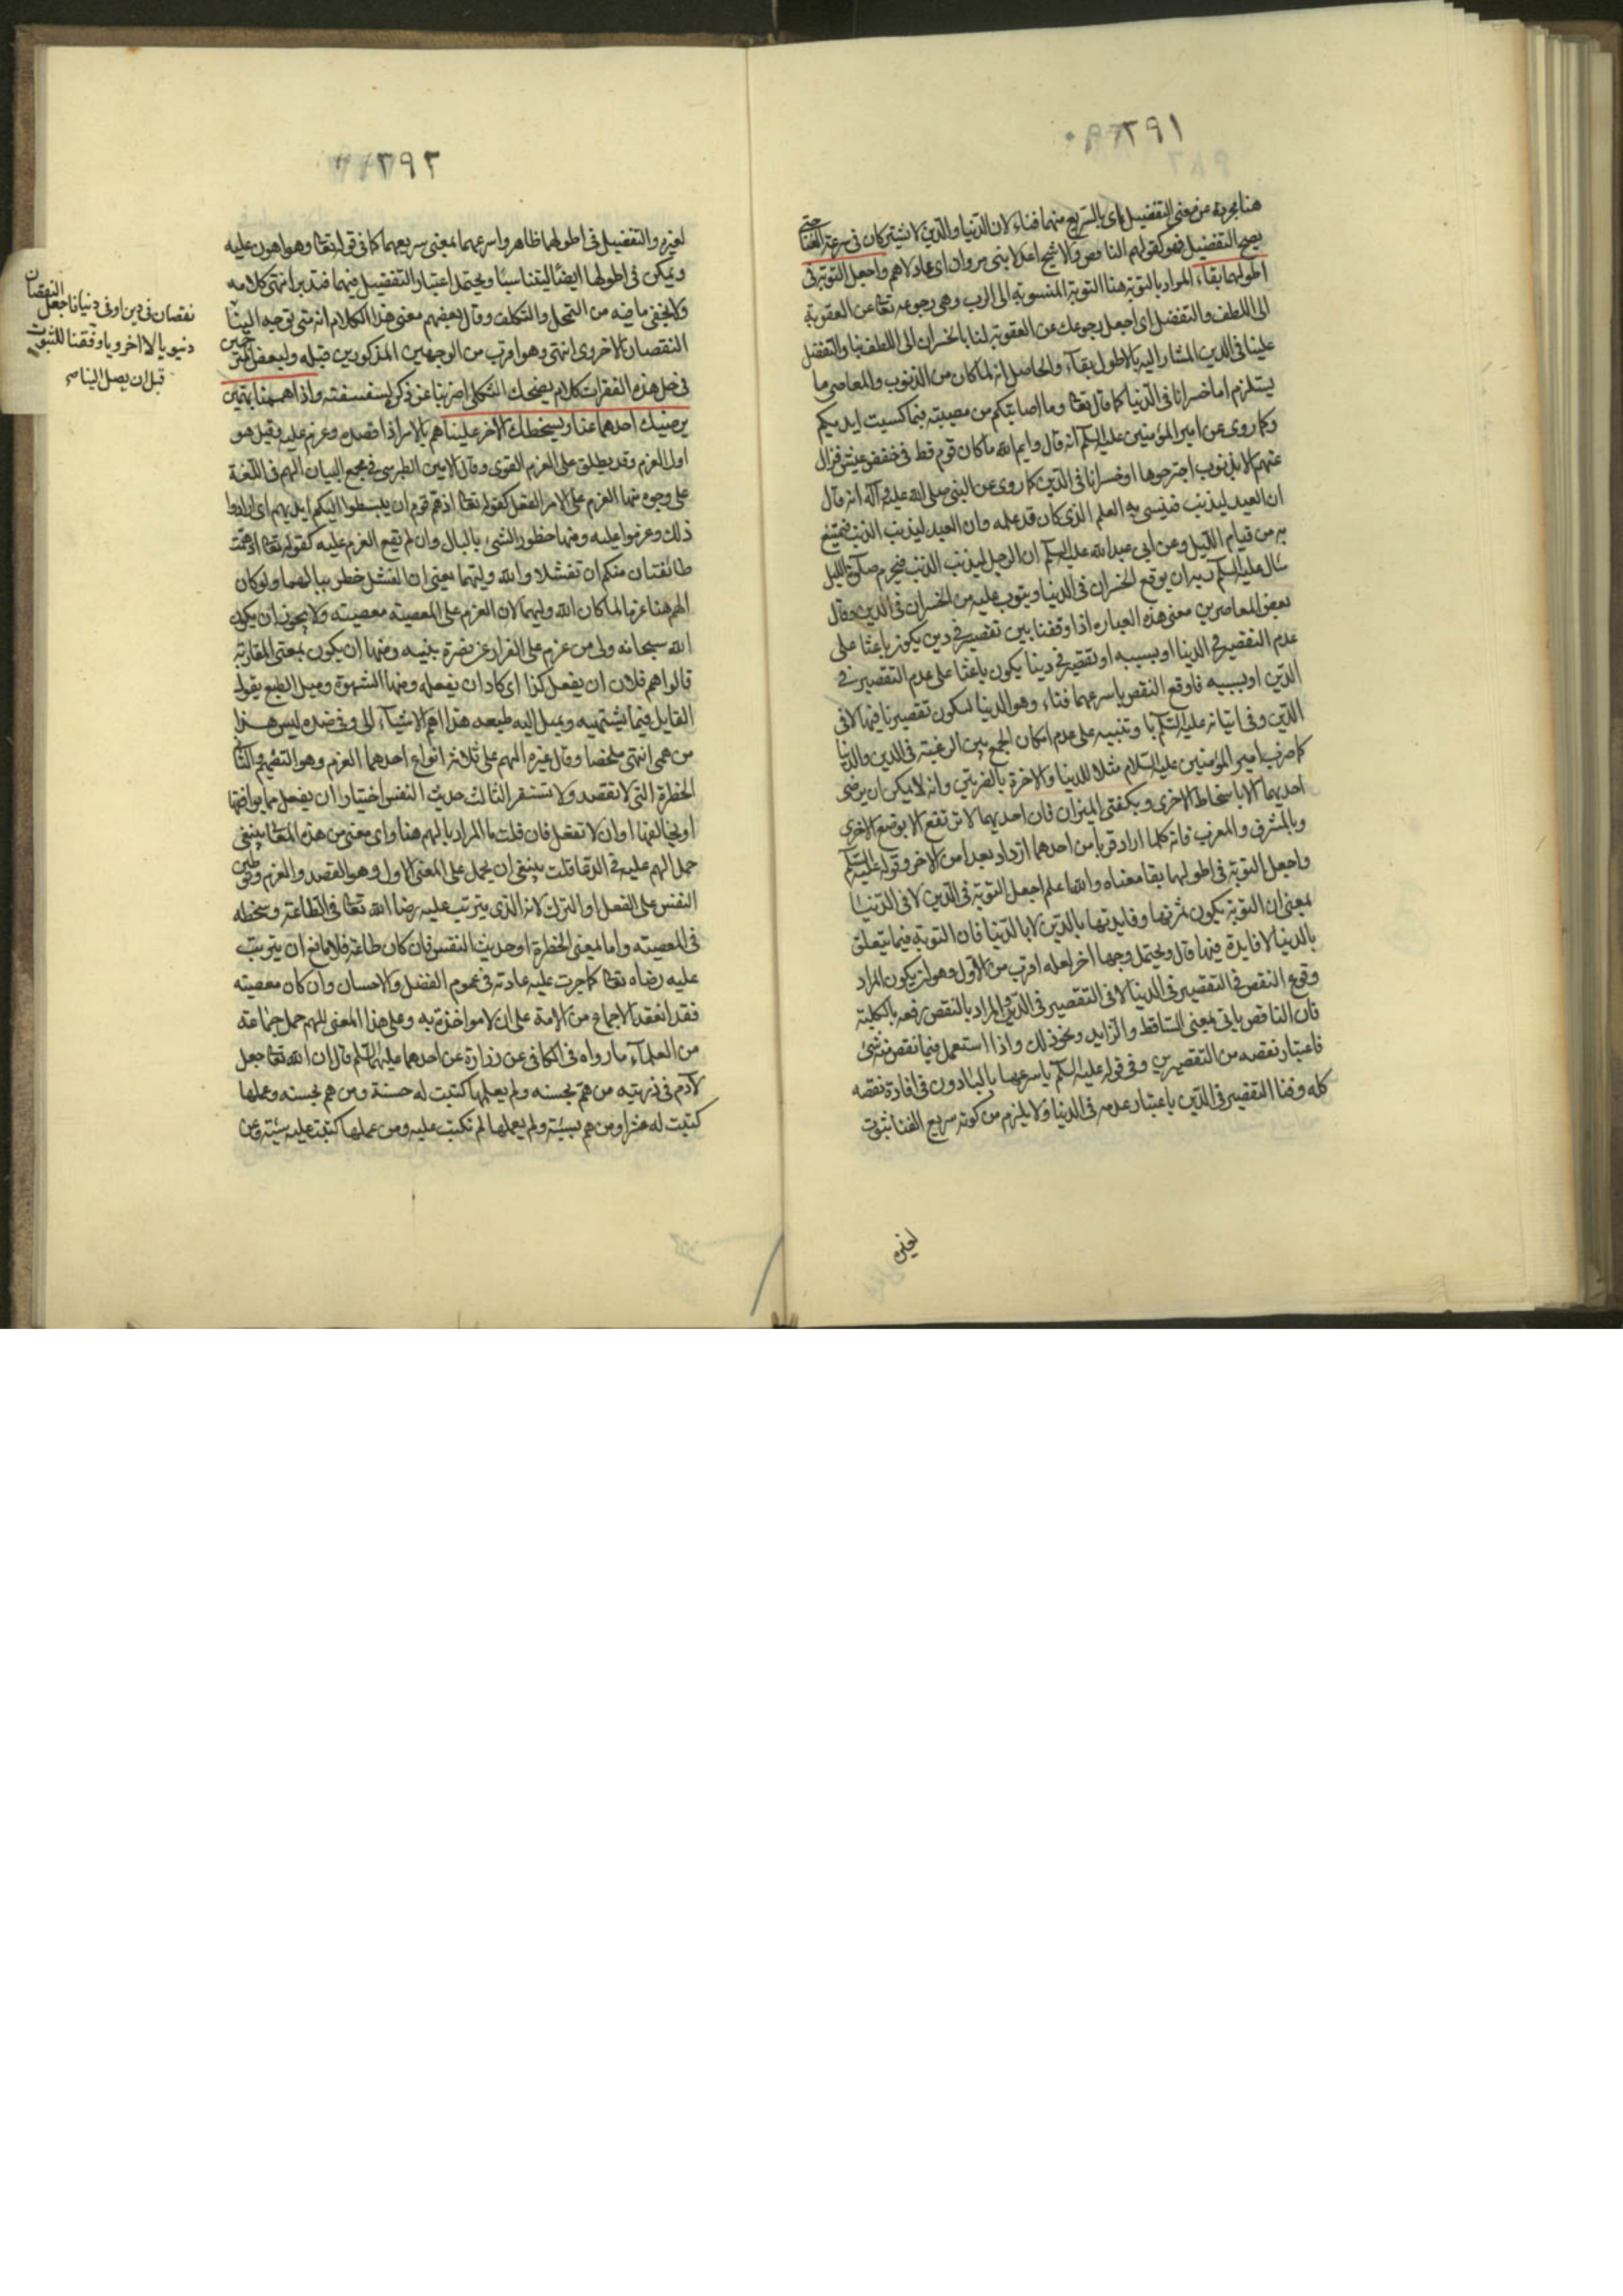 ٢٩١
هنا مجردة عن معنى التفضيل اى بالسريع منهما فناء لان الدنيا والدين لا يشتركان فى سرعة الفنا حتى
يصح التفضيل فهو كقولهم الناقص والاشج اعدلا بنى مروان اى عادلاهم واجعل التوبة فى
اطولهما بقاء المراد بالتوبة هنا التوبة المنسوبة الى الرب وهى رجوعه تعالى عن العقوبة
الى اللطف والتفضل اى اجعل رجوعك عن العقوبة لنا بالخسران الى اللطف بنا والتفضل
علينا فى الدين المشار اليه بالاطول بقاء والحاصل انه لما كان من الذنوب والمعاصى ما
يستلزم اما خسرانا فى الدنيا كما قال تعالى وما اصابتكم من مصيبة فبما كسبت ايديكم
وكما روى عن امير المؤمنين عليه السلم انه قال وايم الله ما كان قوم قط فى خفض عيش فزال
عنهم الا بذنوب اجترحوها او خسرانا فى الدين كما روى عن النبى صلى الله عليه وآله انه قال
ان العبد ليذنب فينسى به العلم الذى كان قد علمه وان العبد ليذنب الذنب فيمتنع
به من قيام الليل وعن ابى عبد الله عليه السلم ان الرجل ليذنب الذنب فيحرم صلوة الليل
سال عليه السلم ربه ان يوقع الخسران فى الدنيا ويتوب عليه من الخسران فى الدين وقال
بعض المعاصرين معنى هذه العباره اذا وقفنا بين تقصير فى دين يكون باعثا على
عدم التقصير فى الدنيا او بسببه او تقصير فى دينا يكون باعثا على عدم التقصير فى
الدين او بسببه فاوقع النقص باسرعهما فناء وهو الدنيا ليكون تقصيرنا فيها لا فى
الدين وفى اتيانه عليه السلم باو تنبيه على عدم امكان الجمع بين الرغبة فى الدين والدنيا
كما ضرب امير المؤمنين عليه السلام مثلا للدنيا والاخرة بالضرتين وانه لا يمكن ان يرضى
احديهما الا باسخاط الاخرى وبكفتى الميزان فان احديهما لا ترتفع الا بوضع الاخرى
وبالمشرق والمغرب فانه كلما اراد قربا من احدهما ازداد بعدا من الاخر وقوله عليه السلم
واجعل التوبة فى اطولهما بقا معناه والله اعلم اجعل التوبة فى الدين لا فى الدنيا
بمعنى ان التوبة يكون ثمرتها وفايدتها بالدين لا بالدنيا فان التوبة فيما يتعلق
بالدنيا لا فايدة فيها قال ويحتمل وجها اخر لعله اقرب من الاول وهو ان يكون المراد
وقوع النقص فى التقصير فى الدنيا لا فى التقصير فى الدين والمراد بالنقص رفعه بالكلية
فان الناقص ياتى بمعنى الساقط والزايد ونحو ذلك واذا استعمل فيما نقص منه شئ
فاعتبار نقصه من التقصيرين وفى قوله عليه السلم باسرعهما بالباء دون فى افادة نقصه
كله وفنا التقصير فى الدين باعتبار عدمه فى الدنيا ولا يلزم من كونه سريع الفنا ثبوت
لغيره
٢٩٢
لغيره والتفضيل فى اطولهما ظاهر واسرعهما بمعنى سريعهما كما فى قوله تعالى وهو اهون عليه
ويمكن فى اطولهما ايضا ليتناسبا ويحتمل اعتبار التفضيل فيهما فتدبر انتهى كلامه
ولا يخفى ما فيه من التمحل والتكلف وقال بعضهم معنى هذا الكلام انه متى توجه الينا
النقصان الاخروى انتهى وهو اقرب من الوجهين المذكورين قبله ولبعض المترجمين
فى حل هذه الفقرات كلام يضحك الثكلى اضربنا عن ذكره لسفسفته واذا هممنا بهمين
يرضيك احدهما عنا ويسخطك الاخر علينا هم بالامر اذا قصده وعزم عليه وقيل هو
اول العزم وقد يطلق على العزم القوى وقال الامين الطبرسى فى مجمع البيان الهم فى اللغة
على وجوه منها العزم على الامر الفعل كقوله تعالى اذ هم قوم ان يبسطوا اليكم ايديهم اى ارادوا
ذلك وعزموا عليه ومنها خطور الشئ بالبال وان لم يقع العزم عليه كقوله تعالى اذ همت
طائفتان منكم ان تفشلا والله وليهما يعنى ان الفشل خطر ببالهما ولو كان
الهم هنا عزما لما كان الله وليهما لان العزم على المعصية معصية ولا يجوز ان يكون
الله سبحانه ولى من عزم على الفرار عن نصرة نبيه ومنها ان يكون بمعنى المقاربة
قالوا هم فلان ان يفعل كذا اى كاد ان يفعله ومنها الشهوة وميل الطبع يقول
القايل فيما يشتهيه ويميل اليه طبعه هذا اهم الاشياء الى وفى ضده ليس هذا
من همى انتهى ملخصا وقال غيره الهم على ثلاثة انواع احدهما العزم وهو التصميم والثانى
الخطرة التى لا تقصد ولا تستقر الثالث حديث النفس اختيارا ان يفعل ما يوافقها
او يخالفها او ان لا تفعل فان قلت ما المراد بالهم هنا واى معنى من هذه المعانى ينبغى
حمل الهم عليه فى الدعا قلت ينبغى ان يحمل على المعنى الاول وهو القصد والعزم وتوطين
النفس على الفعل او الترك لانه الذى يترتب عليه رضا الله تعالى فى الطاعة وسخطه
فى المعصية واما لمعنى الخطرة او حديث النفس فان كان طاعة فلا مانع ان يترتب
عليه رضاه تعالى كما جرت عليه عادته فى عموم الفضل والاحسان وان كان معصية
فقد انعقد الاجماع من الامة على ان لا مواخذة به وعلى هذا المعنى للهم حمل جماعة
من العلماء ما رواه فى الكافى عن زرارة عن احدهما عليهما السلم قال ان الله تعالى جعل
لآدم فى ذريته من هم بحسنه ولم يعملها كتبت له حسنة ومن هم بحسنه وعملها
كتبت له عشرا ومن هم بسيئة ولم يعملها لم تكتب عليه ومن عملها كتبت عليه سيئة وعن
نقصان فى دين او فى دنيانا جعل النقصان
دنيويا لا اخرويا ووفقنا للتوبة
قبل ان يصل الينا صح